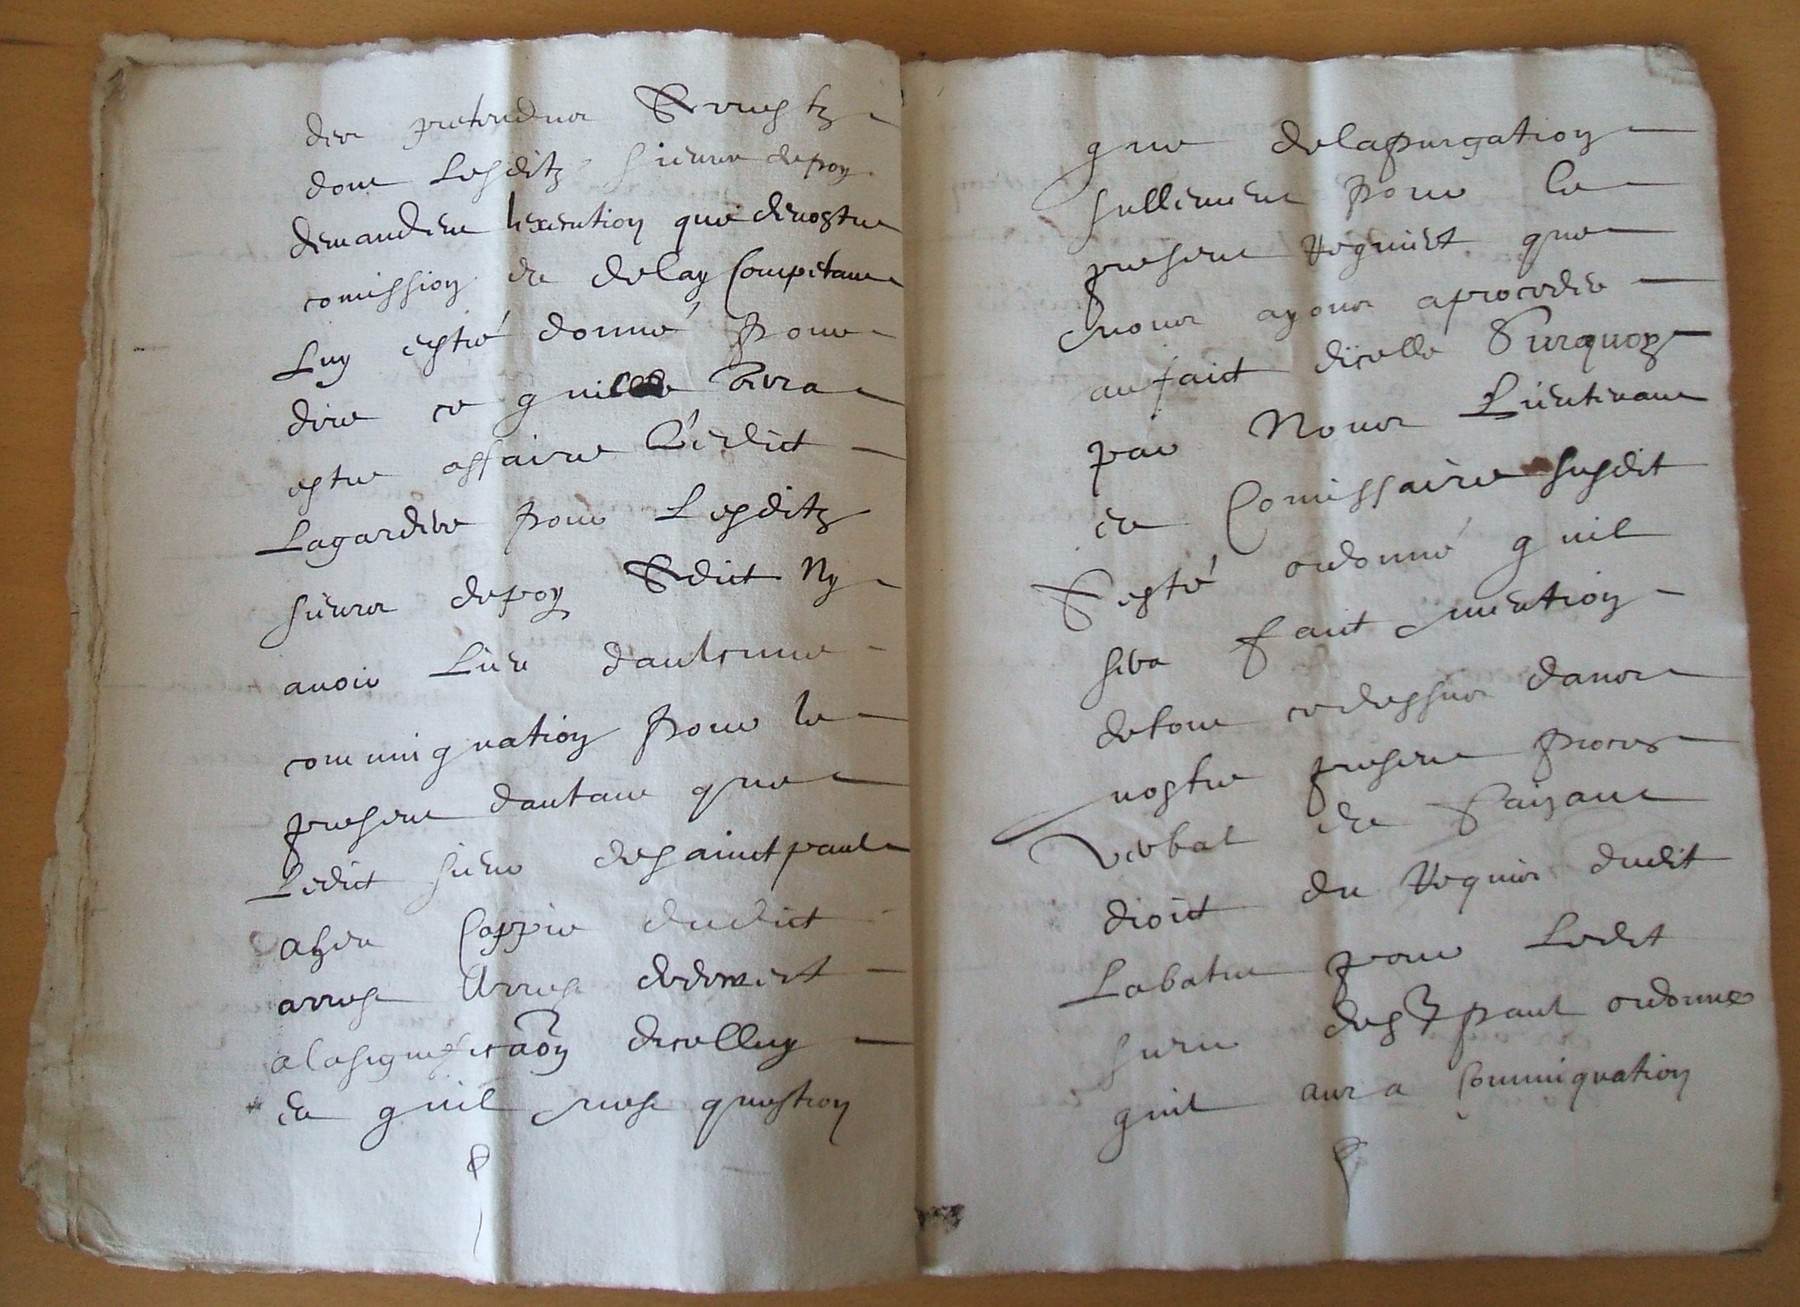 des pretendus Arrestz
dont Lesditz sieurs depoy
demandent lexecution que de nostre
comission et delay Competant
Luy estre donné pour
dire ce quil verra
estre affaire Ledict
Lagardere pour Lesditz
sieurs depoy A dict Ny
avoir Lieu daulcune
communiquation pour le
present dautant que
Ledict sieur desainct paul
a heu Coppie dudict
arrest Arrest
alasignificaõn dicelluy
et quil nest question
que delapurgation
sullement pour le
present Requiert que
nous ayons aproceder
au faict dicelle Surquoy
par Nous Lieutenant
et Comissaire susdit
A esté ordonné quil
sera faict mention
detout cedessus dans
nostre present proces
verbal et Faizant
droict du Requis dudit
Labatut pour Ledit
sieur de St paul ordonne
quil aura Communiquation